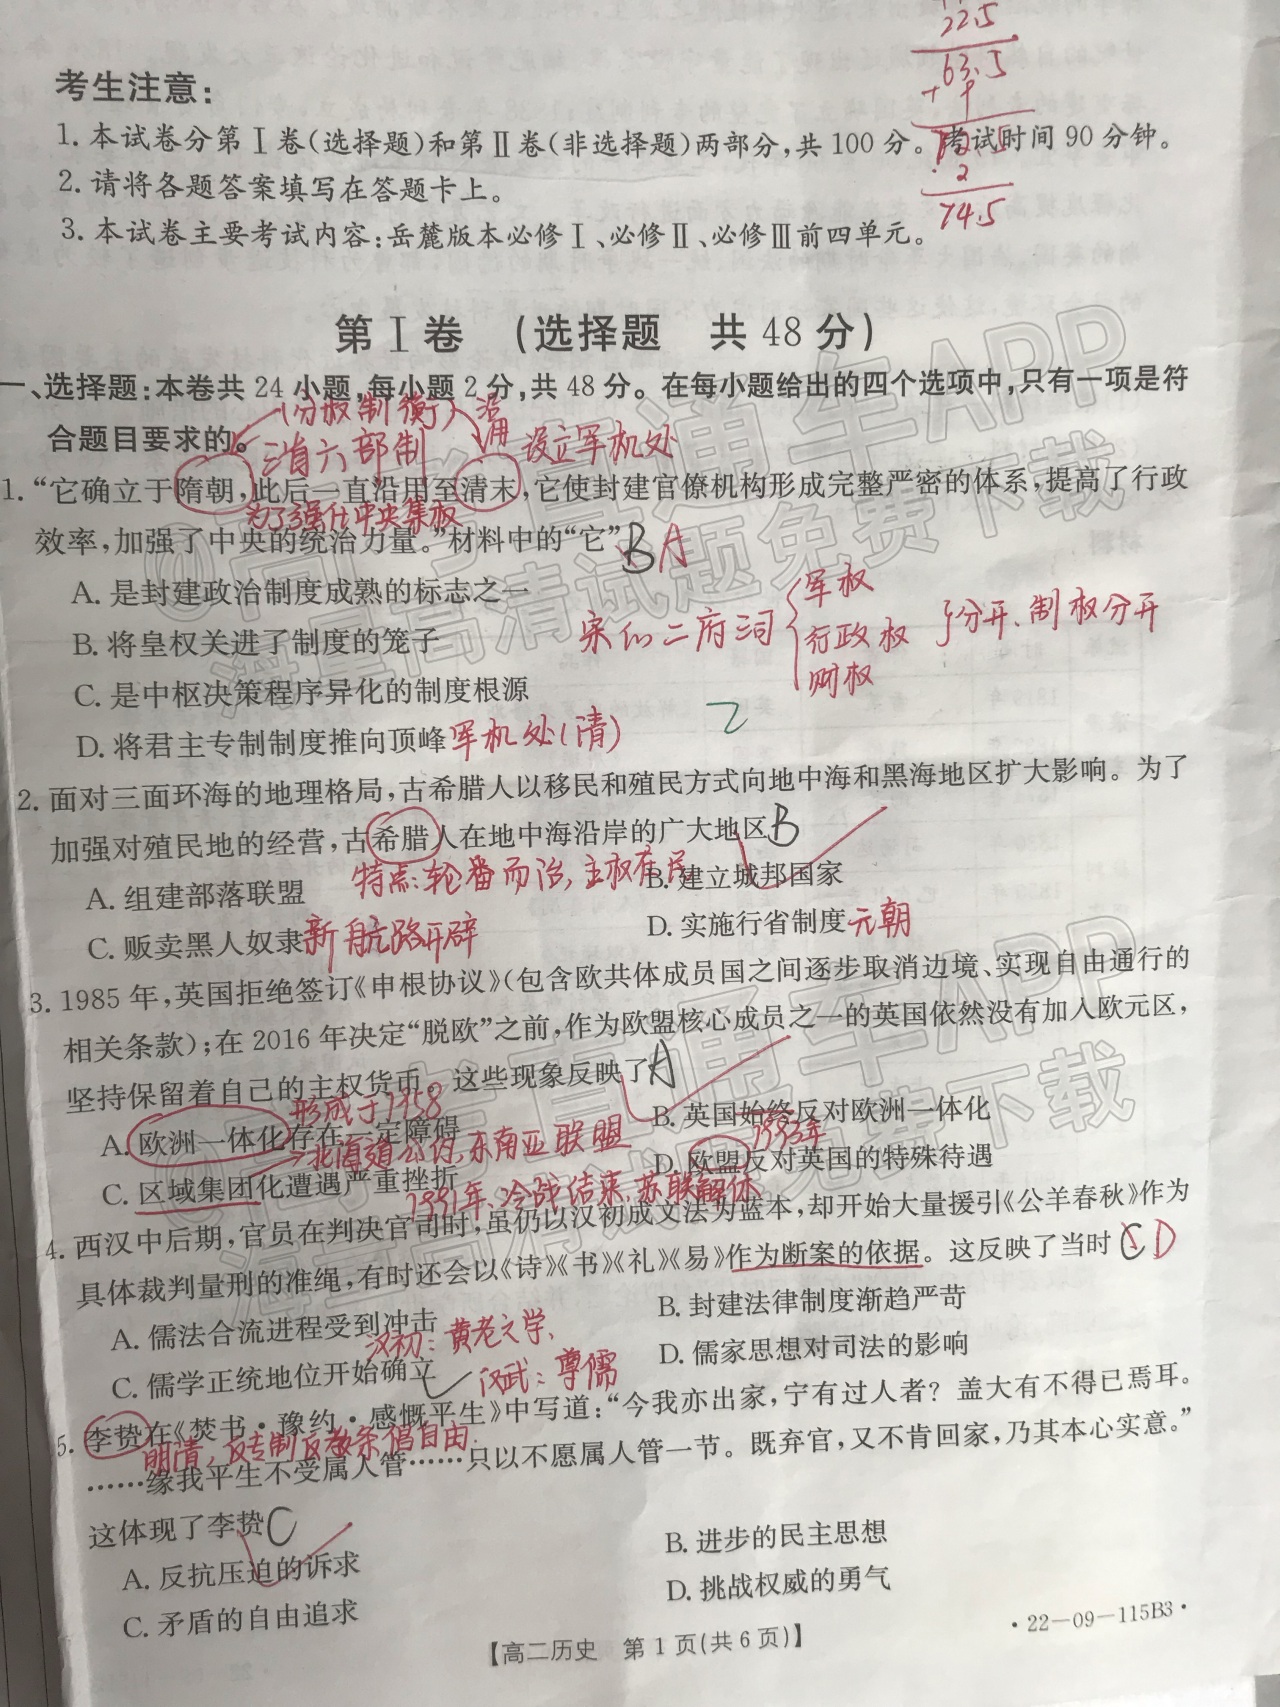 22.5
63.5
考生注意:
1. 本试卷分第Ⅰ卷(选择题)和第Ⅱ卷(非选择题)两部分,共100分。考试时间90分钟。
2. 请将各题答案填写在答题卡上。
2
74.5
3. 本试卷主要考试内容:岳麓版本必修Ⅰ、必修Ⅱ、必修Ⅲ前四单元。
第Ⅰ卷 (选择题 共48分)
一、选择题:本卷共24小题,每小题2分,共48分。在每小题给出的四个选项中,只有一项是符
(分权制衡) 沿用
合题目要求的。 三省六部制 设立军机处
1. “它确立于隋朝,此后一直沿用至清末,它使封建官僚机构形成完整严密的体系,提高了行政
为了强化中央集权
效率,加强了中央的统治力量。”材料中的“它” B A
A. 是封建政治制度成熟的标志之一
B. 将皇权关进了制度的笼子
宋似二府三司 军权 行政权 财权 分开、制权分开
C. 是中枢决策程序异化的制度根源
D. 将君主专制制度推向顶峰 军机处(清)
2. 面对三面环海的地理格局,古希腊人以移民和殖民方式向地中海和黑海地区扩大影响。为了
加强对殖民地的经营,古希腊人在地中海沿岸的广大地区 B
特点:轮番而治,主权在民
A. 组建部落联盟 B. 建立城邦国家
C. 贩卖黑人奴隶 新航路开辟 D. 实施行省制度 元朝
3. 1985年,英国拒绝签订《申根协议》(包含欧共体成员国之间逐步取消边境、实现自由通行的
相关条款);在2016年决定“脱欧”之前,作为欧盟核心成员之一的英国依然没有加入欧元区,
坚持保留着自己的主权货币。这些现象反映了 A
形成于1958
A. 欧洲一体化存在一定障碍 B. 英国始终反对欧洲一体化
北海道公约,东南亚联盟 1993年
C. 区域集团化遭遇严重挫折 D. 欧盟反对英国的特殊待遇
1991年冷战结束,苏联解体
4. 西汉中后期,官员在判决官司时,虽仍以汉初成文法为蓝本,却开始大量援引《公羊春秋》作为
具体裁判量刑的准绳,有时还会以《诗》《书》《礼》《易》作为断案的依据。这反映了当时 C D
A. 儒法合流进程受到冲击 B. 封建法律制度渐趋严苛
汉初:黄老之学、
C. 儒学正统地位开始确立 D. 儒家思想对司法的影响
汉武:尊儒
5. 李贽在《焚书·豫约·感慨平生》中写道:“今我亦出家,宁有过人者?盖大有不得已焉耳。
明清,反专制反教条倡自由.
……缘我平生不受属人管……只以不愿属人管一节。既弃官,又不肯回家,乃其本心实意。”
这体现了李贽 C
A. 反抗压迫的诉求 B. 进步的民主思想
C. 矛盾的自由追求 D. 挑战权威的勇气
【高二历史 第1页(共6页)】
·22-09-115B3·
@高考直通车APP
海量高清试题免费下载
@高考直通车APP
海量高清试题免费下载